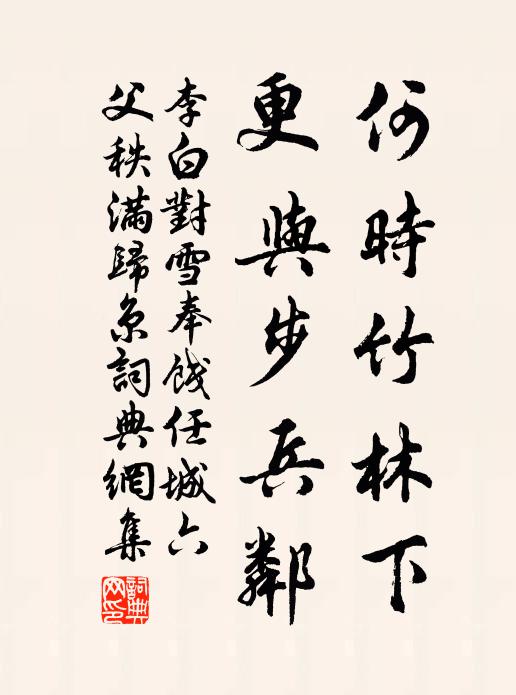 何時竹林下
更與步兵鄰
李白對雪奉餞任城六
父秩滿歸京詞典網集
詞典网印